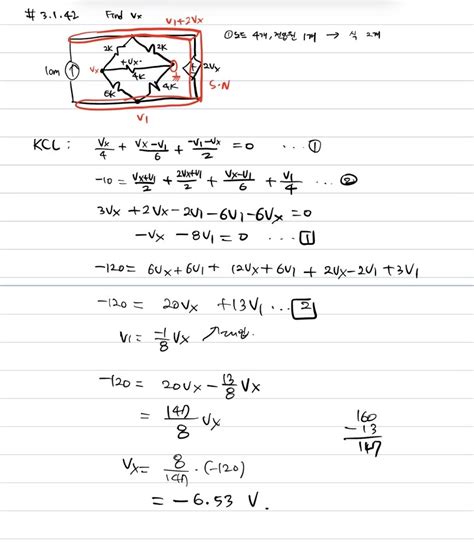 # 3.1.42 Find Vx
V1+2Vx
① 노드 4개, 전압원 1개 → 식 2개
2K 2K
10m Vx +Vx- 4K 0 2Vx
6K 4K S·N
V1
KCL : Vx/4 + (Vx-V1)/6 + (-V1-Vx)/2 = 0 ... ①
-10 = (Vx+V1)/2 + (2Vx+V1)/2 + (Vx-V1)/6 + V1/4 ... ②
3Vx + 2Vx - 2V1 - 6V1 - 6Vx = 0
-Vx - 8V1 = 0 ... 1
-120 = 6Vx + 6V1 + 12Vx + 6V1 + 2Vx - 2V1 + 3V1
-120 = 20Vx + 13V1 ... 2
V1 = -1/8 Vx ↗대입.
-120 = 20Vx - 13/8 Vx
= 147/8 Vx
160
-13
147
Vx = 8/147 · (-120)
= -6.53 V.